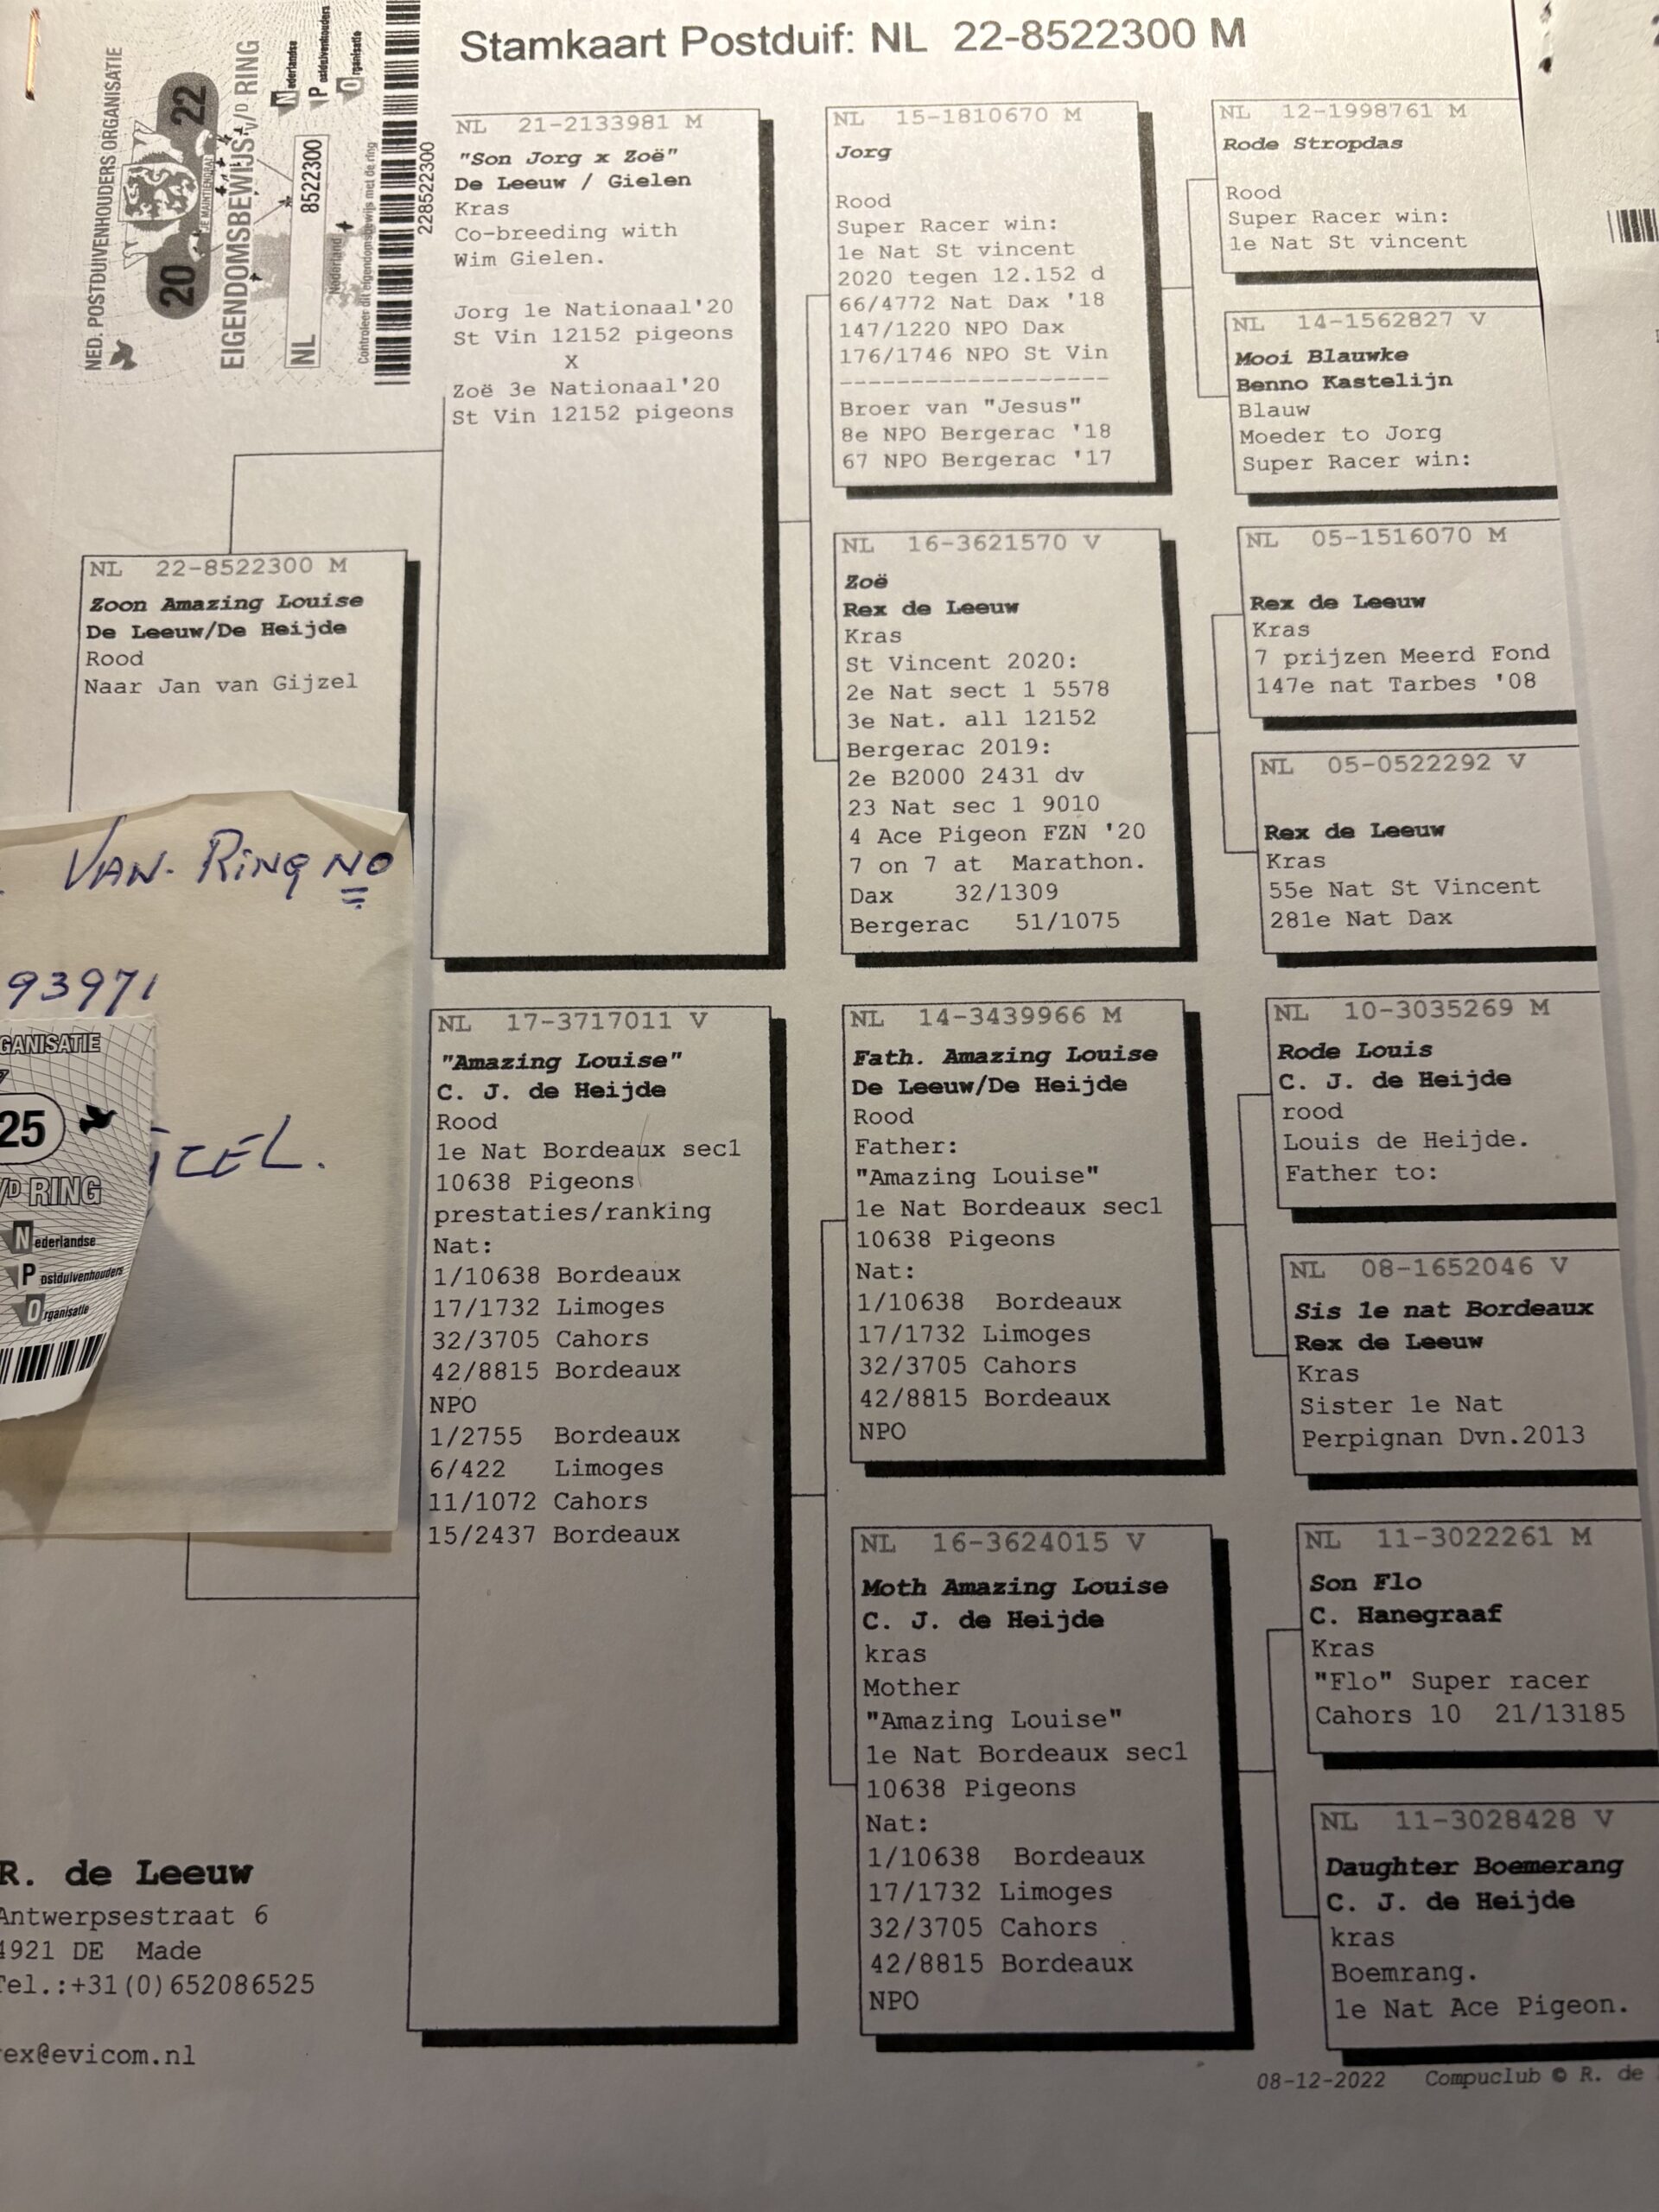 Stamkaart Postduif: NL 22-8522300 M
NED. POSTDUIVENHOUDERS ORGANISATIE
20 22
JE MAINTIENDRAI
EIGENDOMSBEWIJS V/D RING
NL 8522300
Nederland
Nederlandse
Postduivenhouders
Organisatie
Controleer dit eigendomsbewijs met de ring
228522300
NL 22-8522300 M
Zoon Amazing Louise
De Leeuw/De Heijde
Rood
Naar Jan van Gijzel
NL 21-2133981 M
"Son Jorg x Zoë"
De Leeuw / Gielen
Kras
Co-breeding with
Wim Gielen.
Jorg 1e Nationaal'20
St Vin 12152 pigeons
X
Zoë 3e Nationaal'20
St Vin 12152 pigeons
NL 17-3717011 V
"Amazing Louise"
C. J. de Heijde
Rood
1e Nat Bordeaux sec1
10638 Pigeons
prestaties/ranking
Nat:
1/10638 Bordeaux
17/1732 Limoges
32/3705 Cahors
42/8815 Bordeaux
NPO
1/2755 Bordeaux
6/422 Limoges
11/1072 Cahors
15/2437 Bordeaux
NL 15-1810670 M
Jorg
Rood
Super Racer win:
1e Nat St vincent
2020 tegen 12.152 d
66/4772 Nat Dax '18
147/1220 NPO Dax
176/1746 NPO St Vin
-------------------
Broer van "Jesus"
8e NPO Bergerac '18
67 NPO Bergerac '17
NL 16-3621570 V
Zoë
Rex de Leeuw
Kras
St Vincent 2020:
2e Nat sect 1 5578
3e Nat. all 12152
Bergerac 2019:
2e B2000 2431 dv
23 Nat sec 1 9010
4 Ace Pigeon FZN '20
7 on 7 at Marathon.
Dax 32/1309
Bergerac 51/1075
NL 14-3439966 M
Fath. Amazing Louise
De Leeuw/De Heijde
Rood
Father:
"Amazing Louise"
1e Nat Bordeaux sec1
10638 Pigeons
Nat:
1/10638 Bordeaux
17/1732 Limoges
32/3705 Cahors
42/8815 Bordeaux
NPO
NL 16-3624015 V
Moth Amazing Louise
C. J. de Heijde
kras
Mother
"Amazing Louise"
1e Nat Bordeaux sec1
10638 Pigeons
Nat:
1/10638 Bordeaux
17/1732 Limoges
32/3705 Cahors
42/8815 Bordeaux
NPO
NL 12-1998761 M
Rode Stropdas
Rood
Super Racer win:
1e Nat St vincent
NL 14-1562827 V
Mooi Blauwke
Benno Kastelijn
Blauw
Moeder to Jorg
Super Racer win:
NL 05-1516070 M
Rex de Leeuw
Kras
7 prijzen Meerd Fond
147e nat Tarbes '08
NL 05-0522292 V
Rex de Leeuw
Kras
55e Nat St Vincent
281e Nat Dax
NL 10-3035269 M
Rode Louis
C. J. de Heijde
rood
Louis de Heijde.
Father to:
NL 08-1652046 V
Sis 1e nat Bordeaux
Rex de Leeuw
Kras
Sister 1e Nat
Perpignan Dvn.2013
NL 11-3022261 M
Son Flo
C. Hanegraaf
Kras
"Flo" Super racer
Cahors 10 21/13185
NL 11-3028428 V
Daughter Boemerang
C. J. de Heijde
kras
Boemrang.
1e Nat Ace Pigeon.
VAN. RiNg NO
93971
GANISATIE
25
V/D RING
Nederlandse
Postduivenhouders
Organisatie
R. de Leeuw
Antwerpsestraat 6
4921 DE Made
Tel.:+31(0)652086525
rex@evicom.nl
08-12-2022 Compuclub © R. de